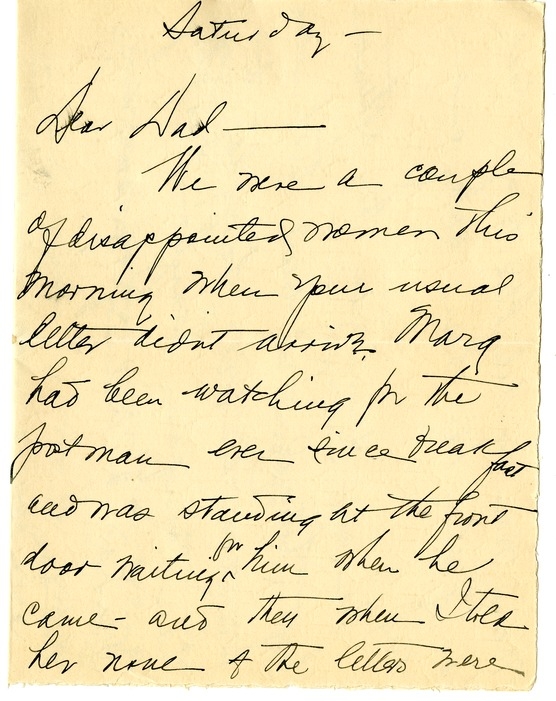 Saturday –
Dear Dad —
We were a couple
of disappointed women this
morning when your usual
letter didnt arrive. Marg
had been watching for the
postman ever since breakfast
and was standing at the front
door waiting for him when he
came – and then when I told
her none of the letters were